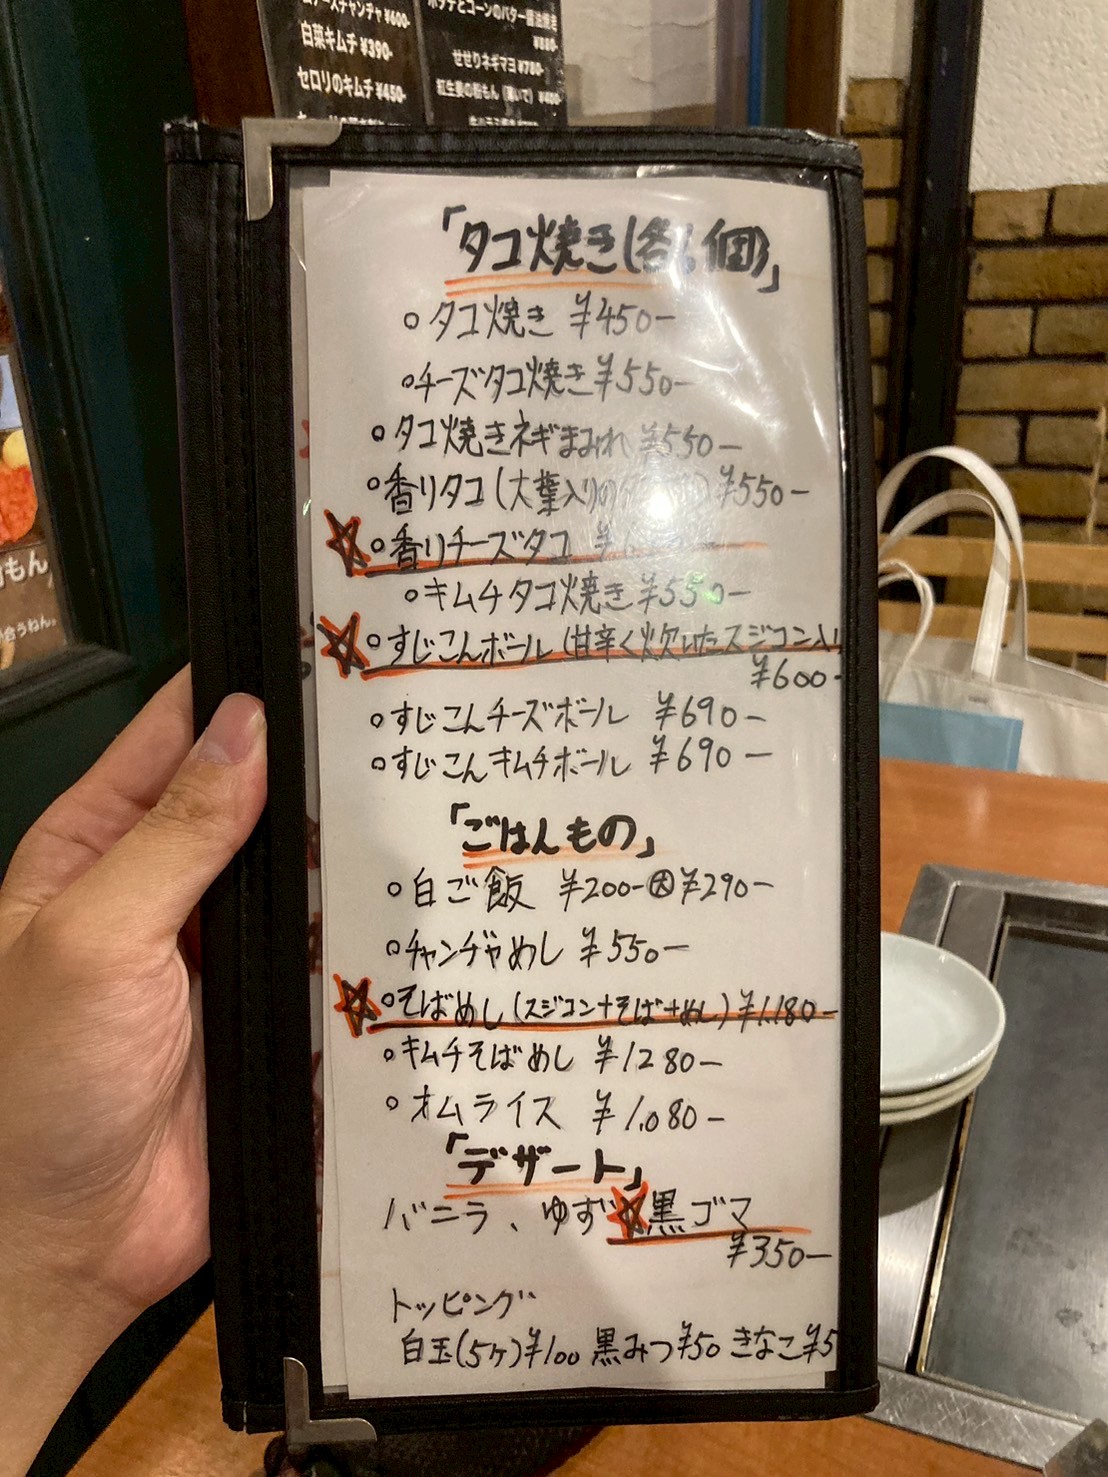 白菜キムチ ¥390-
セロリのキムチ ¥450-
ポテトとコーンのバター醤油焼き
¥880-
せせりネギマヨ ¥780-
「タコ焼き(各6個)」
○タコ焼き ¥450-
○チーズタコ焼き ¥550-
○タコ焼きネギまみれ ¥550-
○香りタコ(大葉入りの ¥550-
☆○香りチーズタコ
○キムチタコ焼き ¥550-
☆○すじこんボール(甘辛く炊いたスジコン入り
¥600-
○すじこんチーズボール ¥690-
○すじこんキムチボール ¥690-
「ごはんもの」
○白ご飯 ¥200-㊛¥290-
○チャンヂャめし ¥550-
☆○そばめし(スジコン+そば+めし) ¥1,180-
○キムチそばめし ¥1280-
○オムライス ¥1,080-
「デザート」
バニラ、ゆず☆黒ゴマ
¥350-
トッピング
白玉(5ヶ)¥100 黒みつ¥50 きなこ¥5